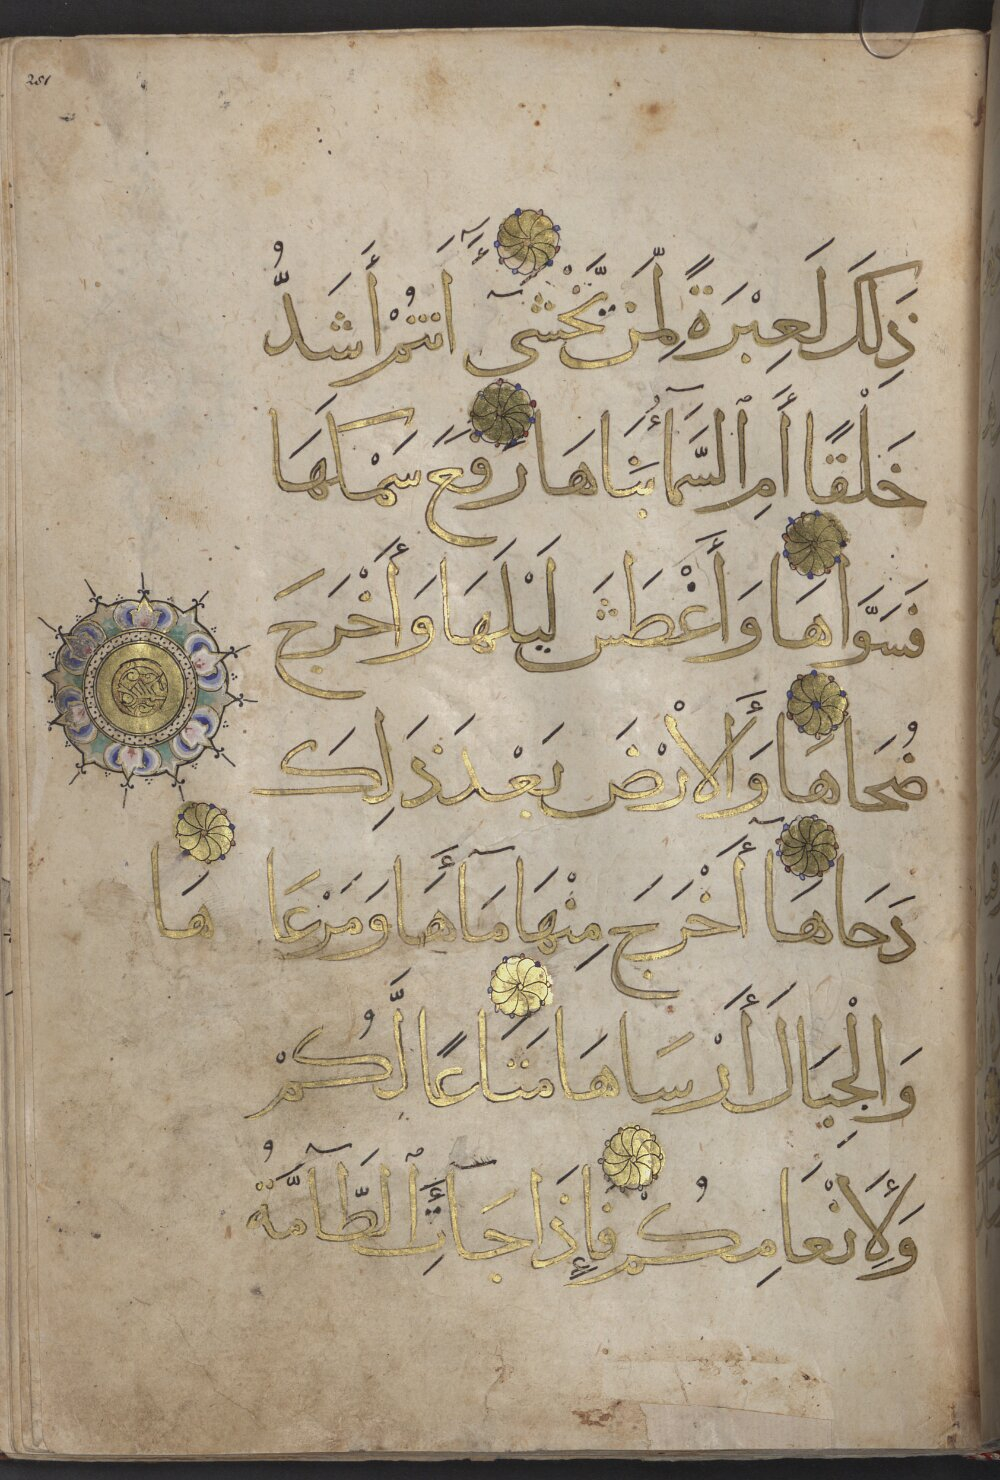 281
ذَلِكَ لَعِبْرَةً لِّمَن يَّخْشَىٓ ءَأَنتُمْ أَشَدُّ
خَلْقًا أَمِ ٱلسَّمَآءُ بَنَاهَا رَفَعَ سَمْكَهَا
فَسَوَّاهَا وَأَغْطَشَ لَيْلَهَا وَأَخْرَجَ
ضُحَاهَا وَٱلْأَرْضَ بَعْدَ ذَالِكَ
دَحَاهَآ أَخْرَجَ مِنْهَا مَآءَهَا وَمَرْعَاهَا
وَالْجِبَالَ أَرْسَاهَا مَتَاعًا لَّكُمْ
وَلِأَنْعَامِكُمْ فَإِذَا جَآءَتِ ٱلطَّآمَّةُ